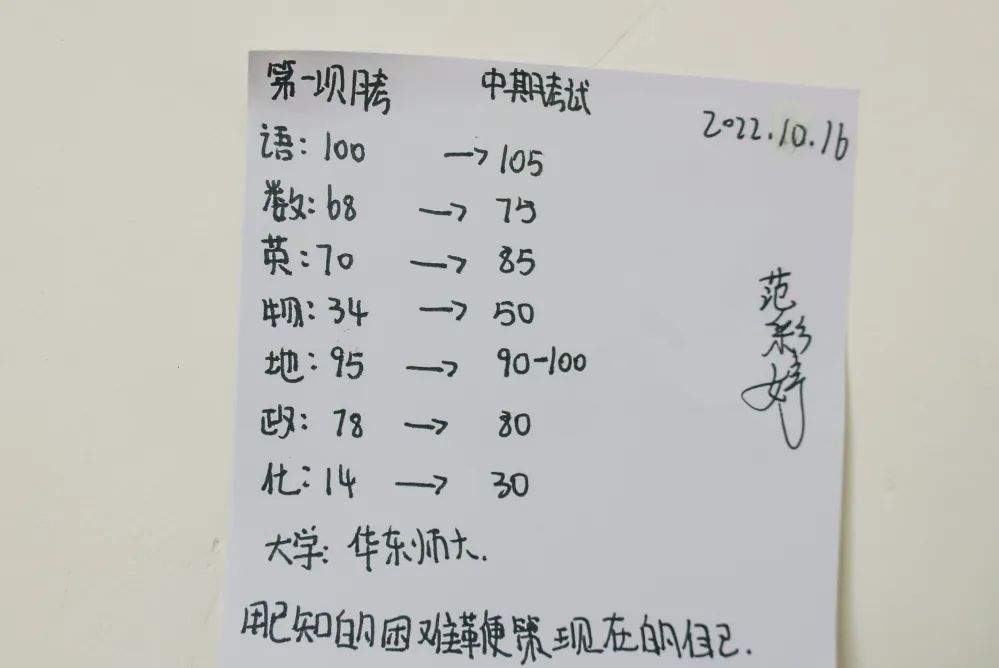 第一次月考 中期考试
2022.10.16
语:100 → 105
数:68 → 75
英:70 → 85
物:34 → 50
地:95 → 90-100
政:78 → 80
化:14 → 30
范彩婷
大学:华东师大.
用已知的困难鞭策现在的自己.